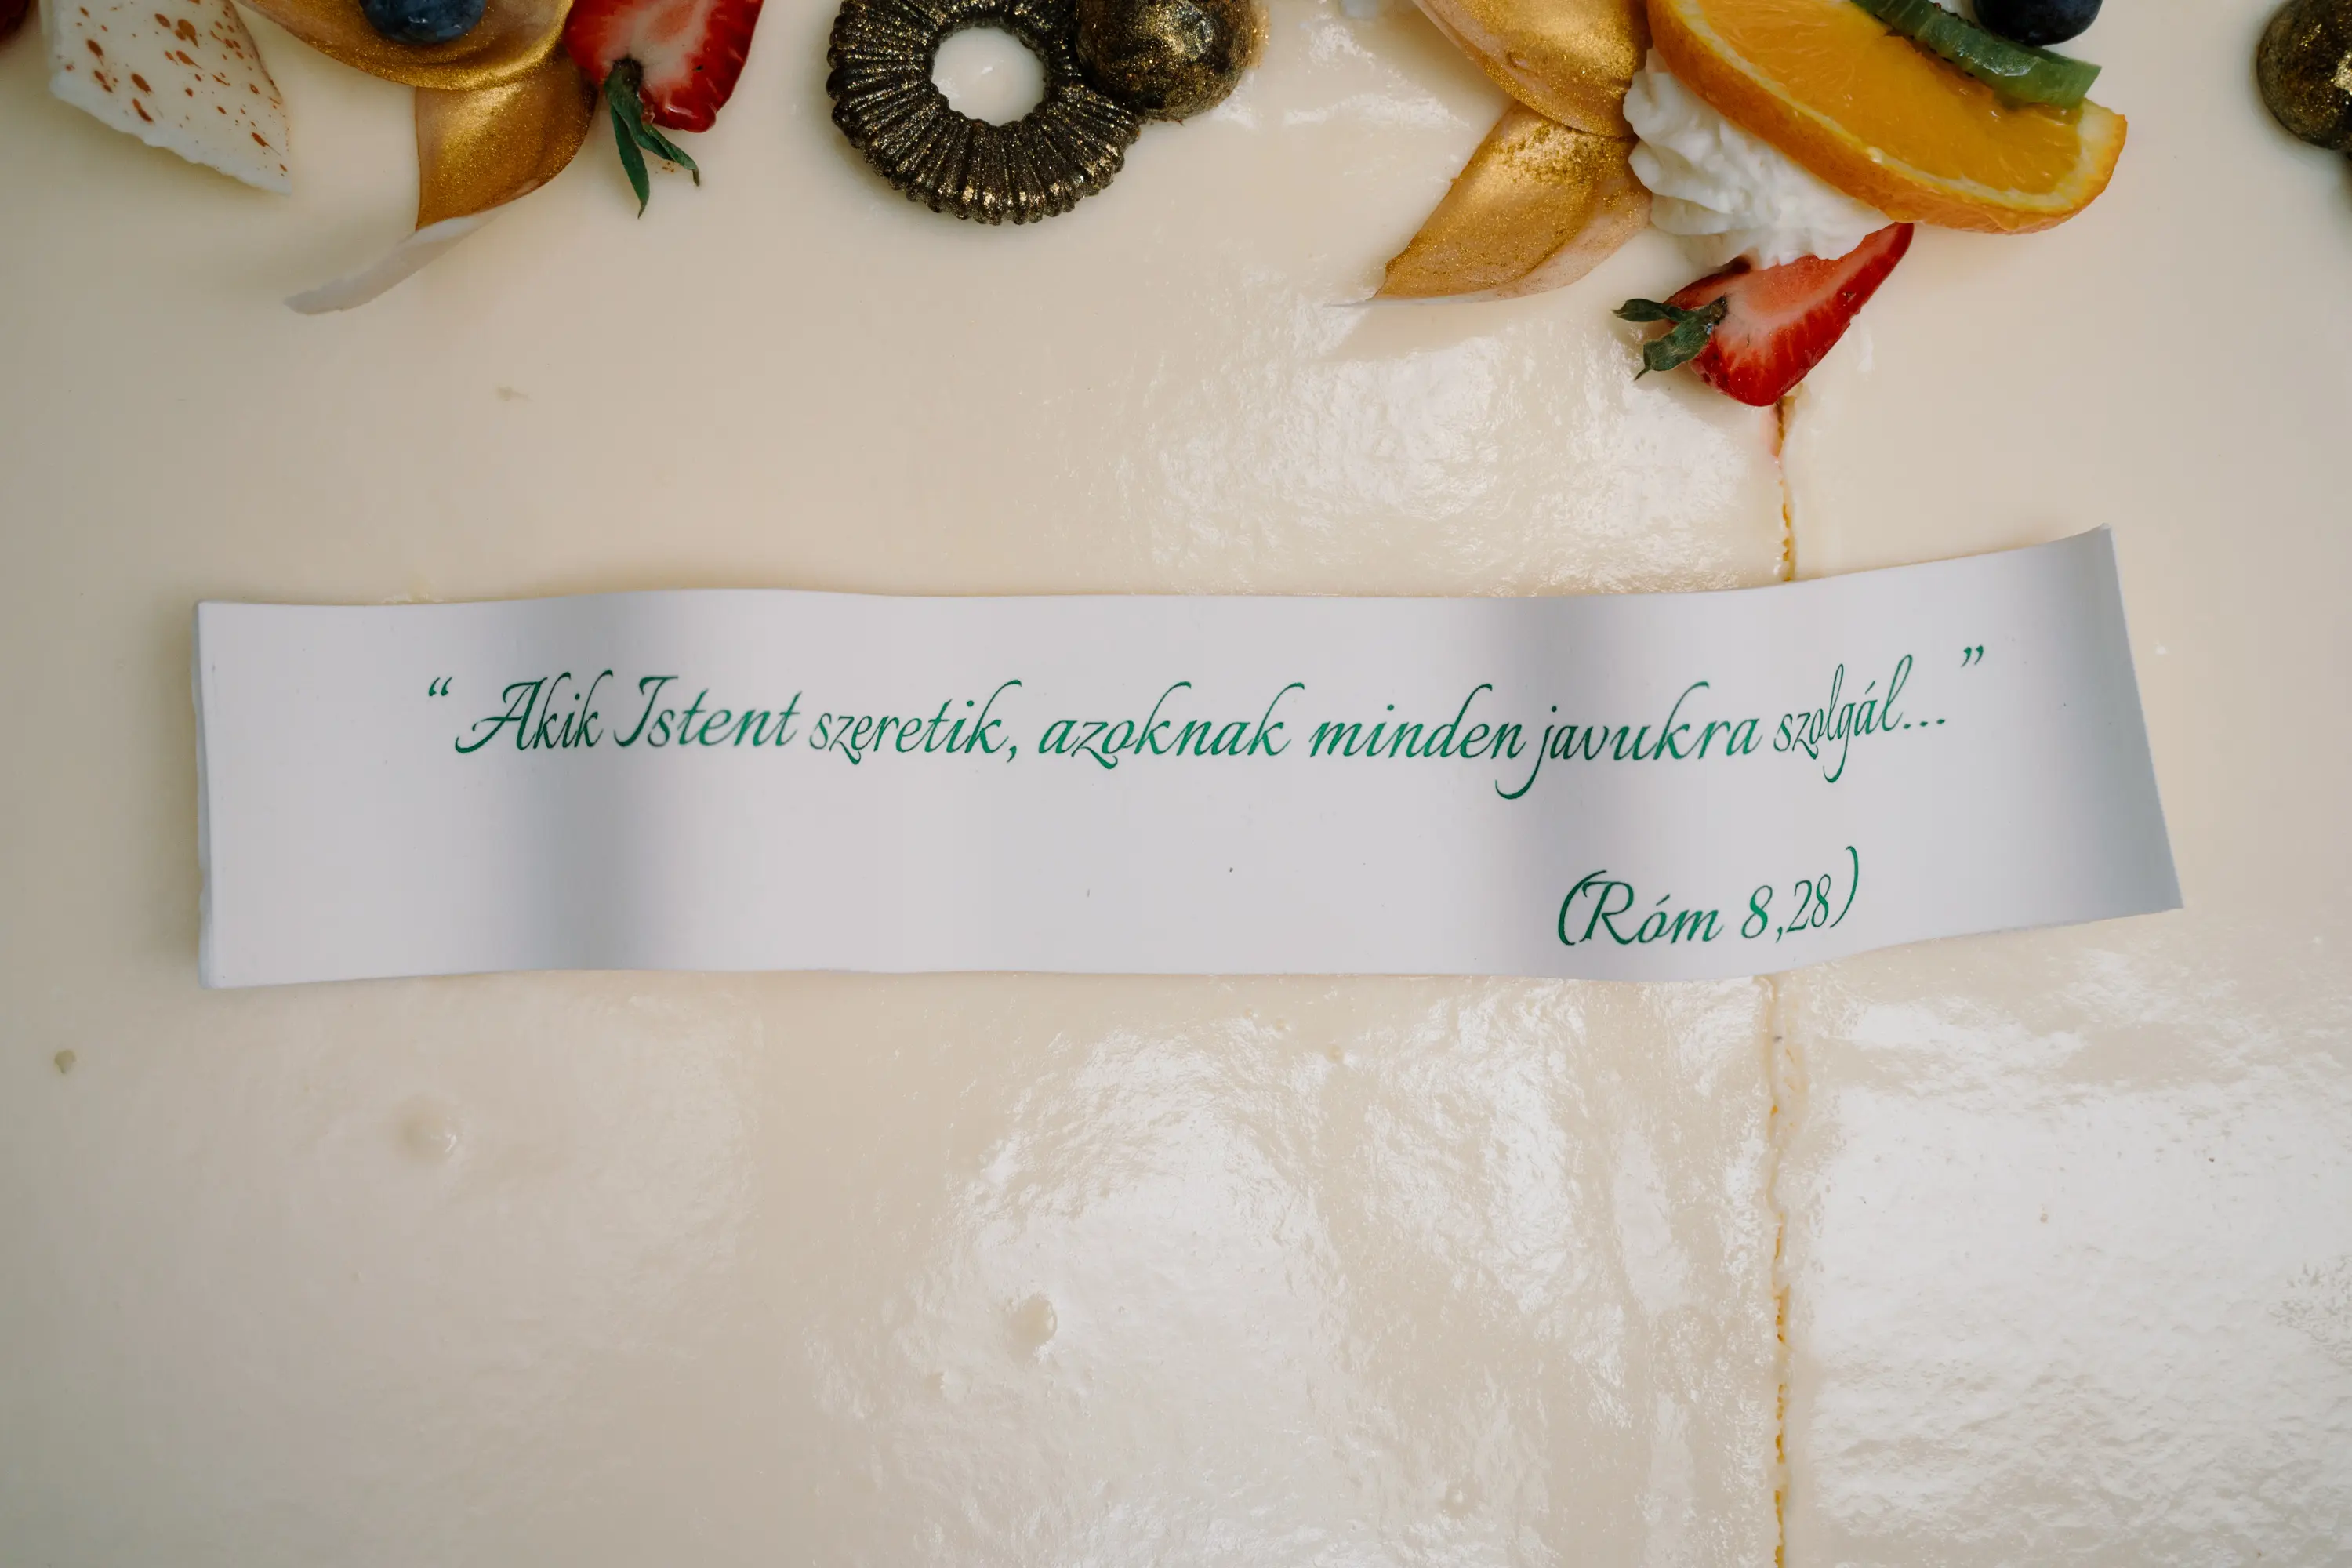 “ Akik Istent szeretik, azoknak minden javukra szolgál... ”
(Róm 8,28)